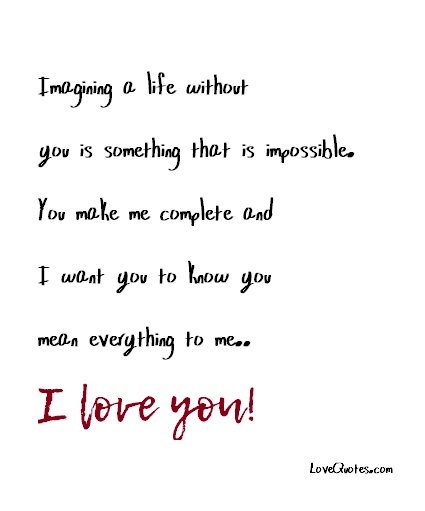 Imagining a life without
you is something that is impossible.
You make me complete and
I want you to know you
mean everything to me..
I love you!
LoveQuotes.com